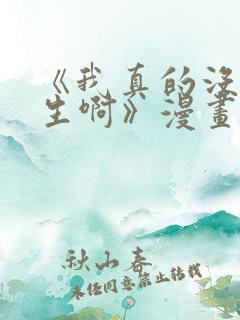 《我真的没
生啊》漫畫
秋山春
未经同意禁止转载